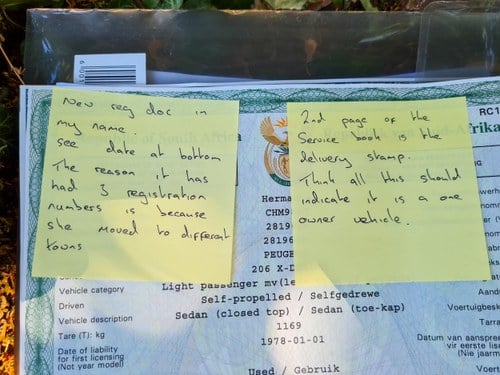 New reg doc in
my name
see date at bottom
The reason it has
had 3 registration
numbers is because
she moved to different
towns
2nd page of the
Service book is the
delivery stamp.
Think all this should
indicate it is a one
owner vehicle.
of South Africa
RC1
Afrika
Herma
CHM98
2819
28196
PEUGE
206 X-D
Vehicle category
Light passenger mv(le
Driven
Self-propelled / Selfgedrewe
Vehicle description
Sedan (closed top) / Sedan (toe-kap)
Voertuigbesk
Tare (T): kg
1169
Tarra
Date of liability
for first licensing
(Not year model)
1978-01-01
Datum van aanspree
vir eerste lise
(Nie jaarm
Used / Gebruik
Voert